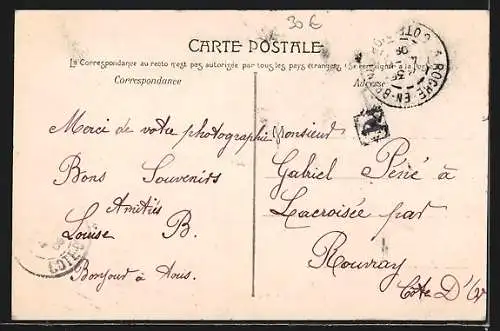 30 €
CARTE POSTALE
La Correspondance au recto n'est pas autorisée par tous les pays étrangers (Se renseigner à la Poste)
Correspondance
Adresse
LA ROCHE-EN-BRENIL
COTE-D'OR
Merci de votre photographie
Bons Souvenirs
Amitiés
Louise B.
Bonjour à tous.
COTE-D'OR
Monsieur
Gabriel Péné à
Lacroisée par
Rouvray
Côte D'Or